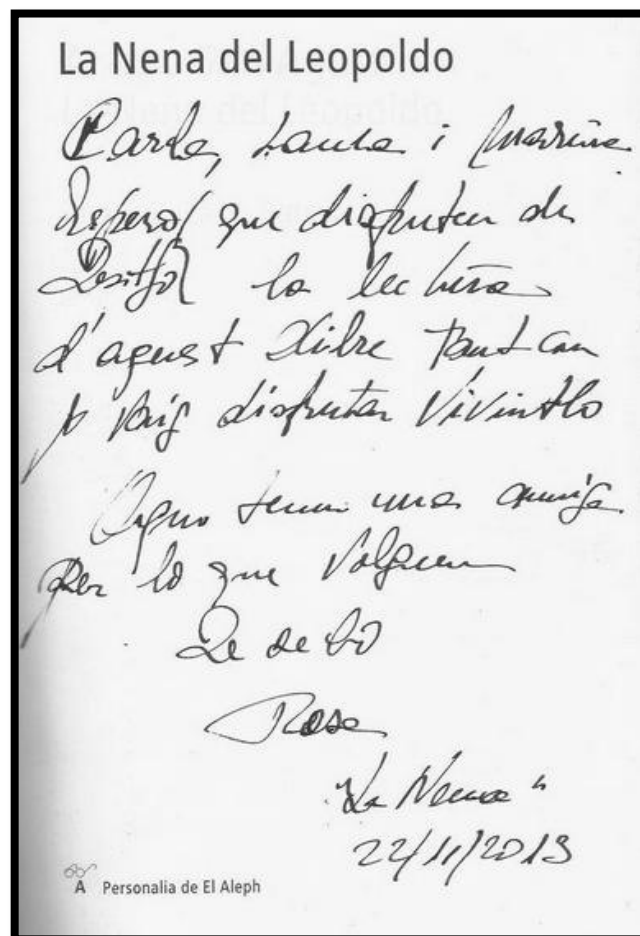 La Nena del Leopoldo
Carla, Laura i Marina
Espero que disfruten de
Desitjo la lectura
d'aquest llibre tant com
jo vaig disfrutar vivintlo
Aquí tenen una amiga
per lo que volguen
De debò
Rosa
"La Nena"
22/11/2013
A Personalia de El Aleph